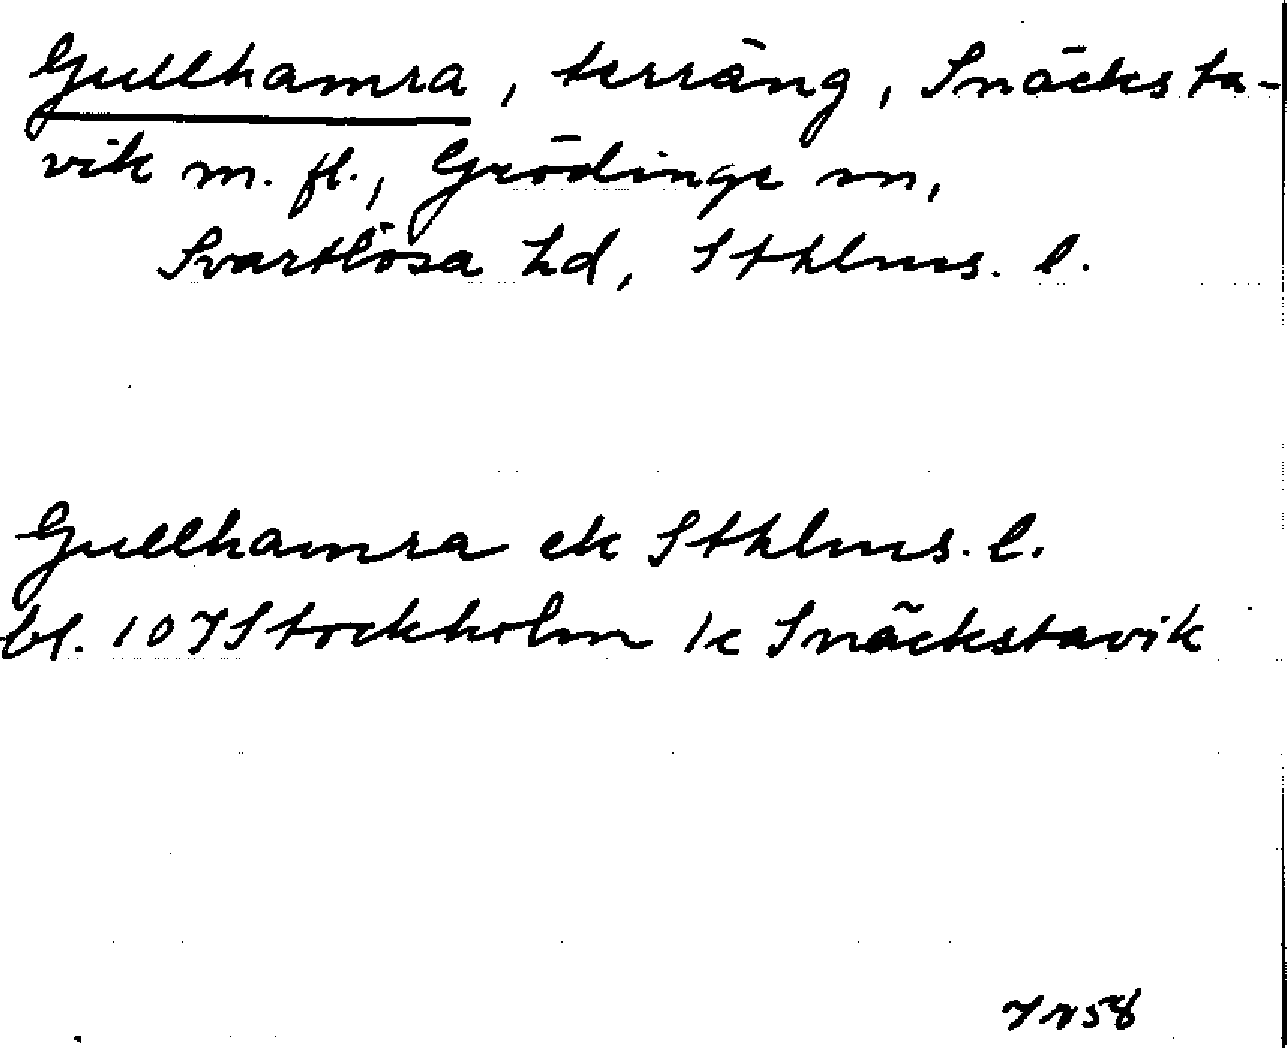 Gullhamra, terräng, Snäcksta-
vik m. fl., Grödinge sn,
Svartlösa hd, Sthlms. l.
Gullhamra ek Sthlms. l.
bl. 107 Stockholm 1c Snäckstavik